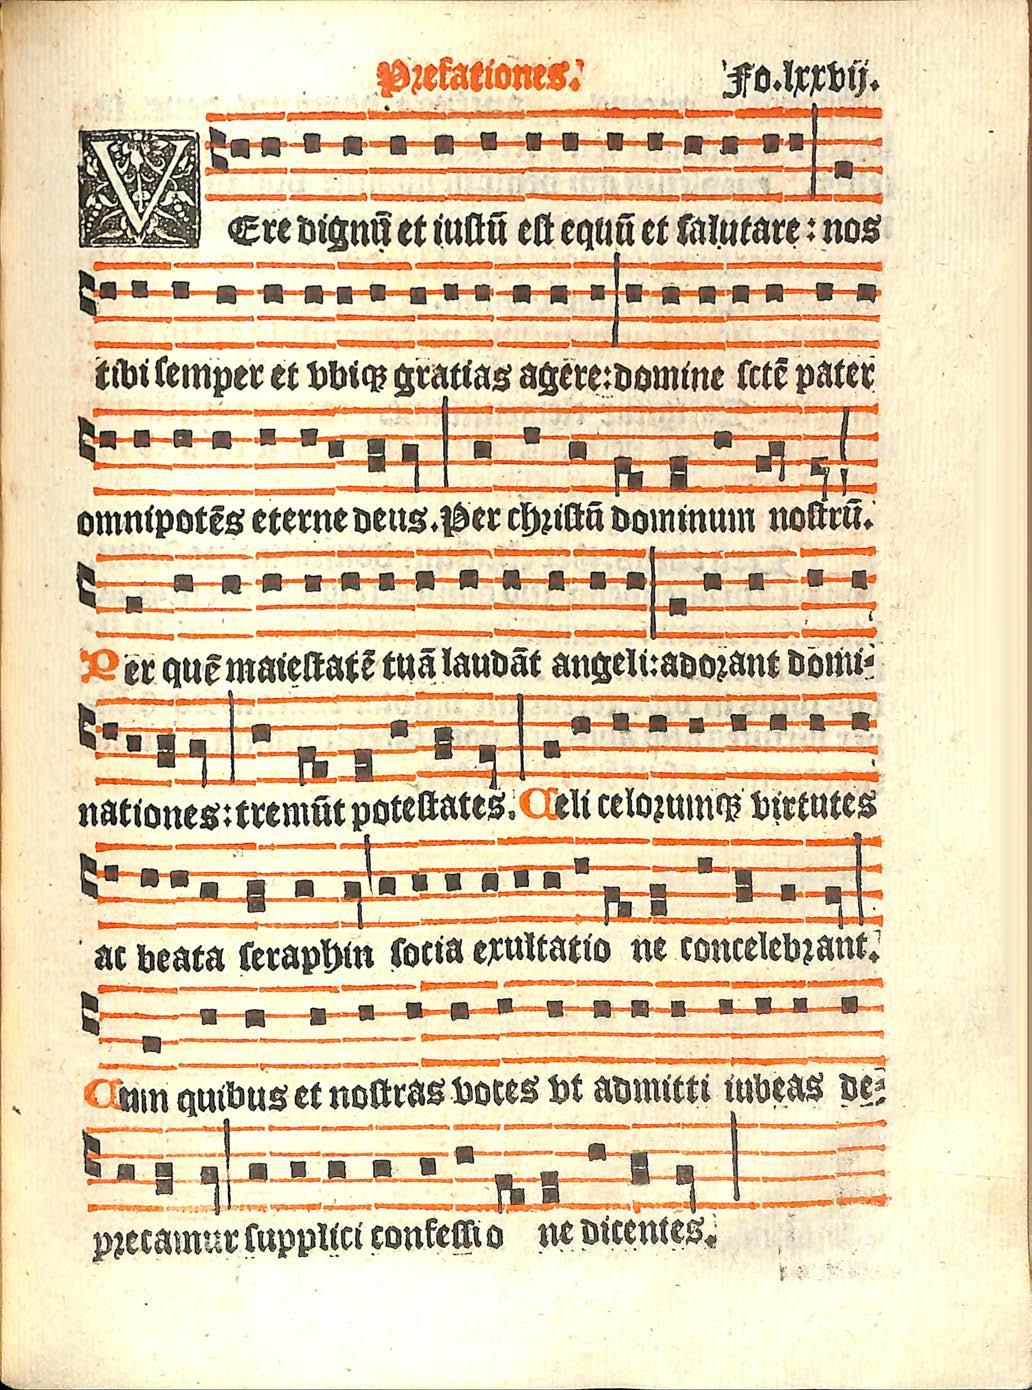 Prefationes. Fo.lxxvij.
VEre dignū et iustū est equū et salutare : nos
tibi semper et vbiqꝫ gratias agere:domine sctē pater
omnipotēs eterne deus.Per christū dominum nostrū.
Per quē maiestatē tuā laudāt angeli:adorant domi-
nationes:tremūt potestates.Celi celorumqꝫ virtutes
ac beata seraphin socia exultatio ne concelebrant.
Cum quibus et nostras voces vt admitti iubeas de-
precamur supplici confessio ne dicentes.